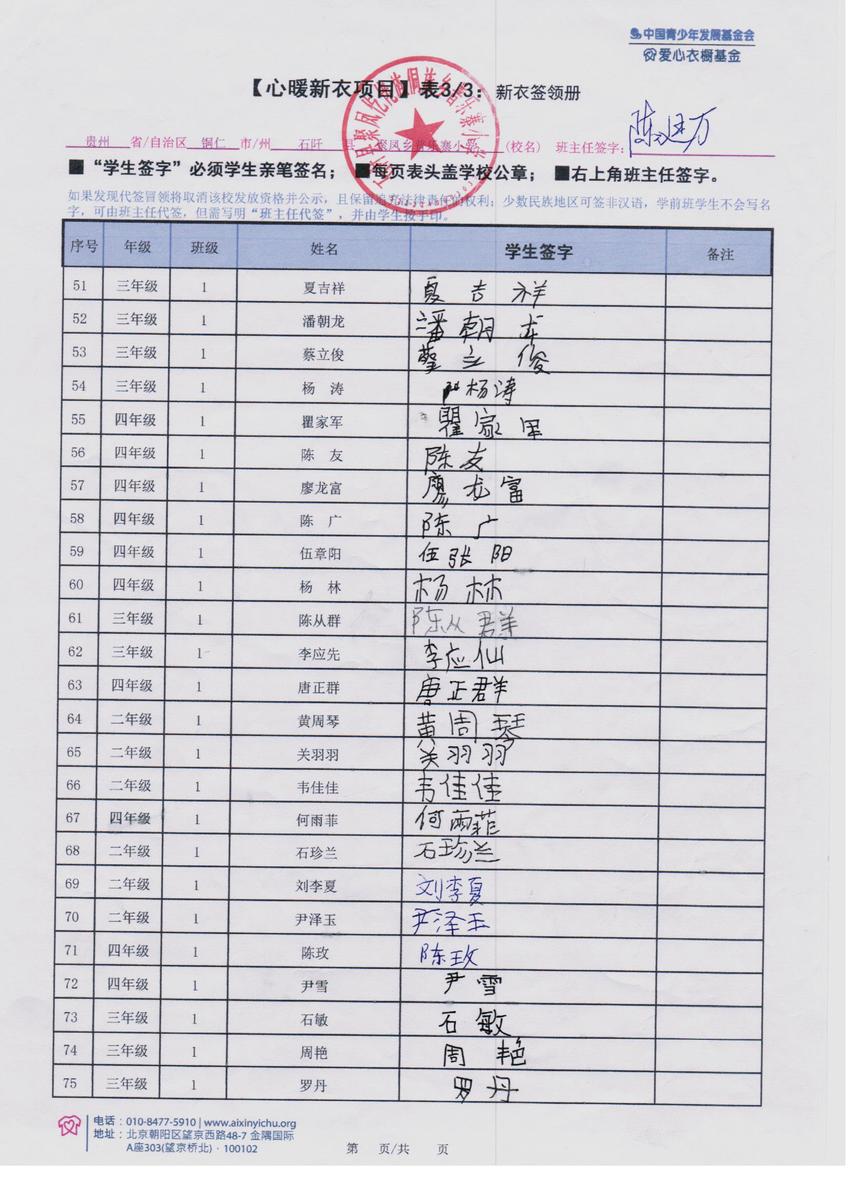 中国青少年发展基金会
爱心衣橱基金
【心暖新衣项目】表3/3：新衣签领册
贵州 省/自治区 铜仁 市/州 石阡 县 聚凤乡 乐寨小学 (校名) 班主任签字：陈 万
■ “学生签字”必须学生亲笔签名； ■每页表头盖学校公章； ■右上角班主任签字。
如果发现代签冒领将取消该校发放资格并公示，且保留追究法律责任的权利；少数民族地区可签非汉语，学前班学生不会写名
字，可由班主任代签，但需写明“班主任代签”，并由学生按手印。
序号 年级 班级 姓名 学生签字 备注
51 三年级 1 夏吉祥 夏吉祥
52 三年级 1 潘朝龙 潘朝龙
53 三年级 1 蔡立俊 蔡立俊
54 三年级 1 杨 涛 杨涛
55 四年级 1 瞿家军 瞿家军
56 四年级 1 陈 友 陈友
57 四年级 1 廖龙富 廖龙富
58 四年级 1 陈 广 陈广
59 四年级 1 伍章阳 伍张阳
60 四年级 1 杨 林 杨林
61 三年级 1 陈从群 陈从群
62 三年级 1 李应先 李应仙
63 四年级 1 唐正群 唐正群
64 二年级 1 黄周琴 黄周琴
65 二年级 1 关羽羽 关羽羽
66 二年级 1 韦佳佳 韦佳佳
67 四年级 1 何雨菲 何雨菲
68 二年级 1 石珍兰 石珍兰
69 二年级 1 刘李夏 刘李夏
70 二年级 1 尹泽玉 尹泽玉
71 四年级 1 陈玫 陈玫
72 四年级 1 尹雪 尹雪
73 三年级 1 石敏 石敏
74 三年级 1 周艳 周艳
75 三年级 1 罗丹 罗丹
电话：010-8477-5910 | www.aixinyichu.org
地址：北京朝阳区望京西路48-7 金隅国际
A座303(望京桥北)·100102
第 页/共 页